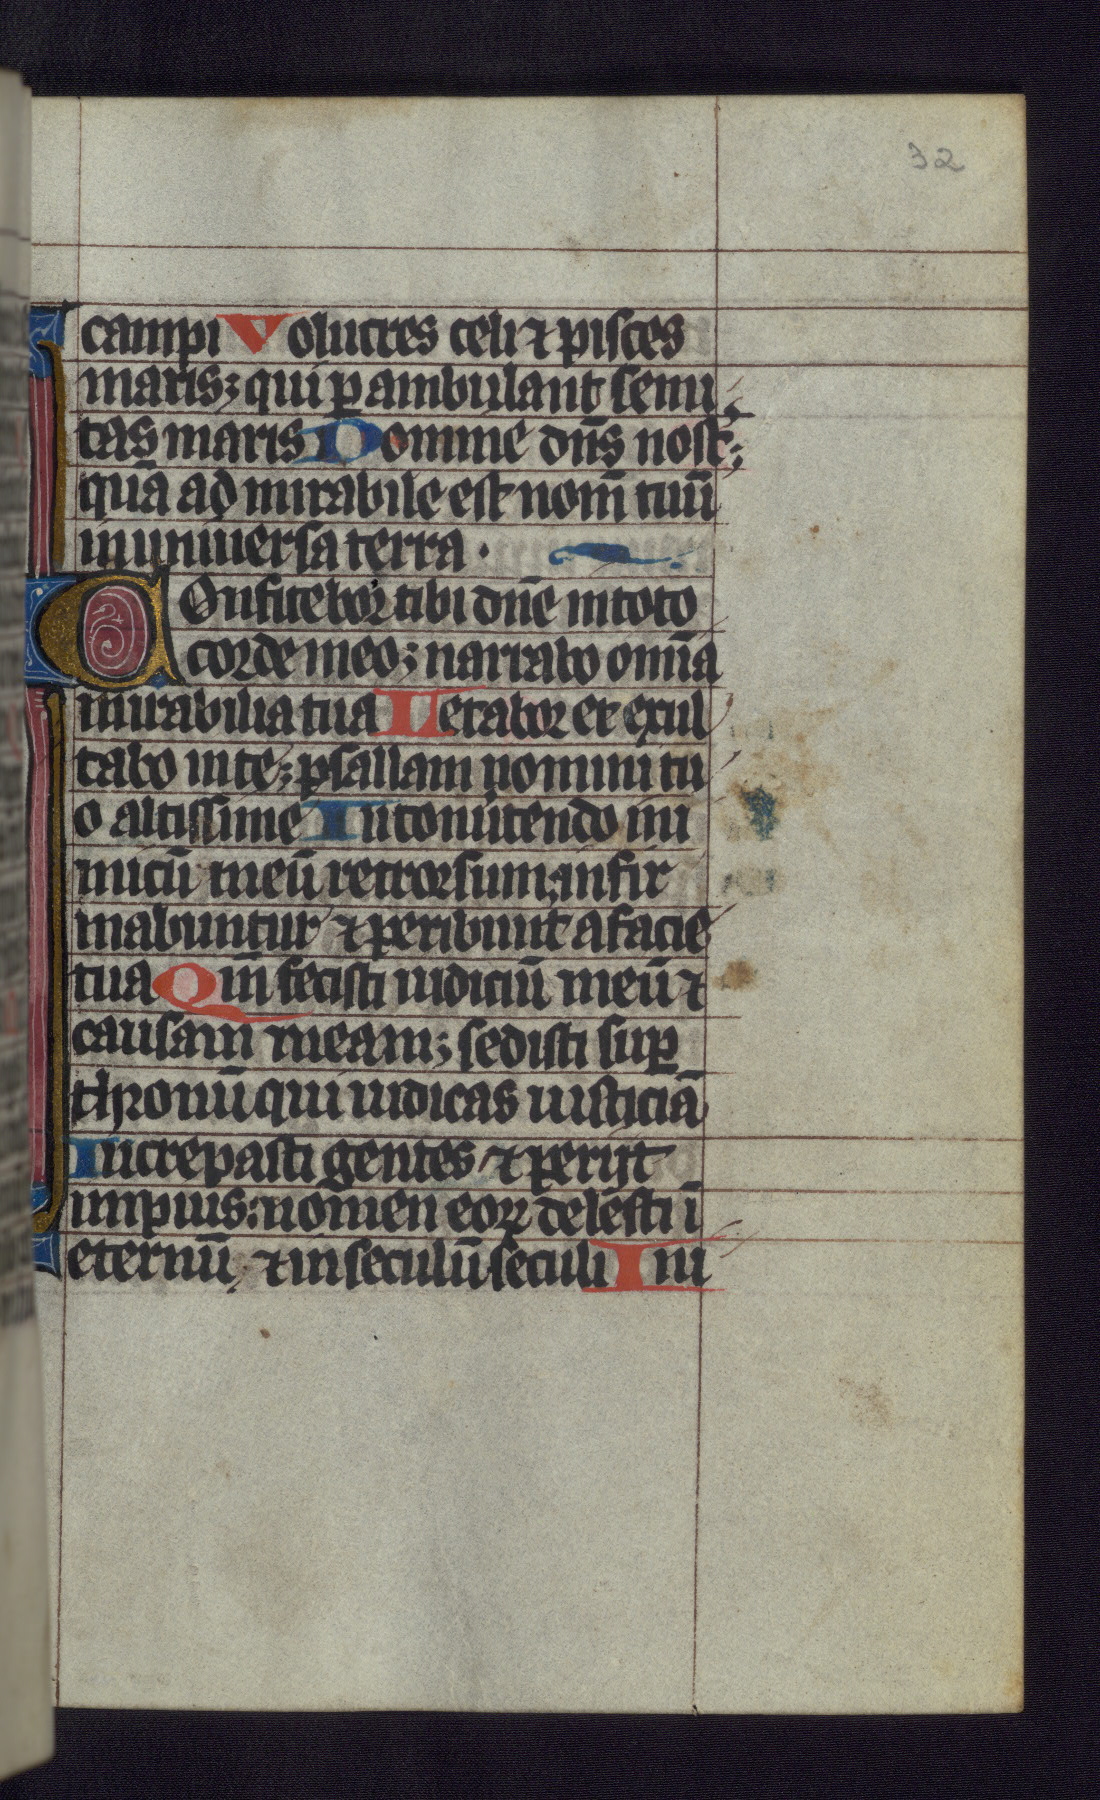 32
campi Volucres celi ⁊ pisces
maris; qui ꝑambulant semi
tas maris Domine dn̄s nost̄;
quā admirabile est nom̄ tuū
in uniuersa terra.
Confitebor tibi dn̄e in toto
corde meo; narrabo omīa
mirabilia tua Letabor et exul
tabo in te; psallam nomini tu
o altissime In conuertendo ini
micū meū retrorsum; infir
mabuntur ⁊ peribunt a facie
tua Qm̄ fecisti iudiciū meū ⁊
causam meam; sedisti suꝑ
thronū qui iudicas iusticiā
Increpasti gentes ⁊ perijt
impius: nomen eoꝝ delesti ī
eternū ⁊ in seculū seculi Ini